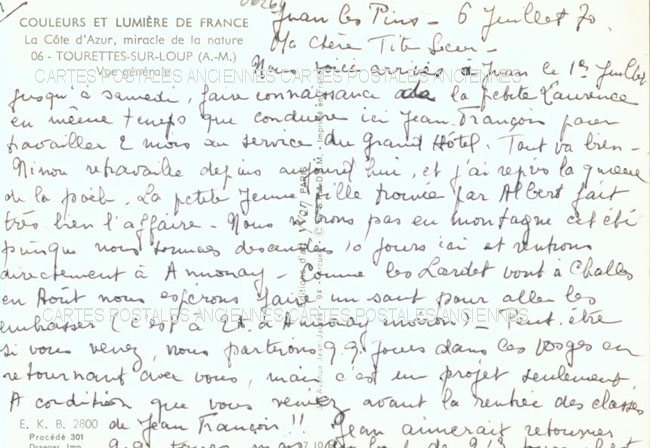 COULEURS ET LUMIÈRE DE FRANCE
La Côte d'Azur, miracle de la nature
06 - TOURETTES-SUR-LOUP (A.-M.)
Vue générale
Juan les Pins - 6 Juillet 70
Ma chère Tite Soeur -
Nous voici arrivés à Juan le 1er Juillet
CARTES POSTALES ANCIENNES CARTES POSTALES ANCIENNES
jusqu'à samedi, faire connaissance de la petite Laurence
en même temps que conduire ici Jean François pour
travailler 2 mois au service du Grand Hôtel. Tout va bien -
Ninon retravaille depuis aujourd'hui, et j'ai repris la queue
de la poêle. La petite jeune fille trouvée par Albert fait
très bien l'affaire - Nous n'irons pas en montagne cet été
puisque nous sommes descendus 10 jours ici et rentrons
directement à Annonay - Comme les Lardet vont à Challes
en Août nous espérons faire un saut pour aller les
CARTES POSTALES ANCIENNES CARTES POSTALES ANCIENNES
embrasser (c'est à 2h. d'Annonay environ) - Peut-être
si vous venez, nous partirons qq. jours dans les Vosges en
retournant avec vous, mais c'est un projet seulement,
A condition que vous veniez avant la rentrée des classes
de Jean François !! Jean aimerait retourner
E. K. B. 2800
Procédé 301
Draeger Imp.
qq. jours